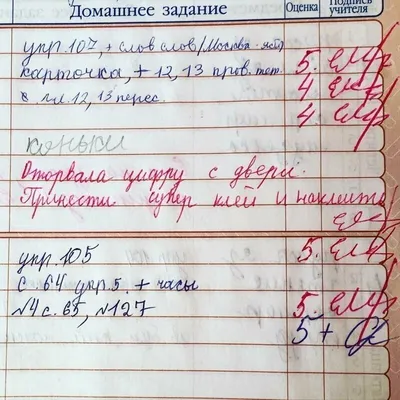 Домашнее задание Оценка Подпись учителя
упр. 107, + слов слов/Москва
5.
карточка, + 12, 13 пров.
4
с гл. 12, 13 перес.
4.
коньки
Оторвала цифру с двери.
Принести супер клей и наклеить
упр. 105
5.
с 64 упр. 5. + часы
№4 с. 65, №127
5.
5+